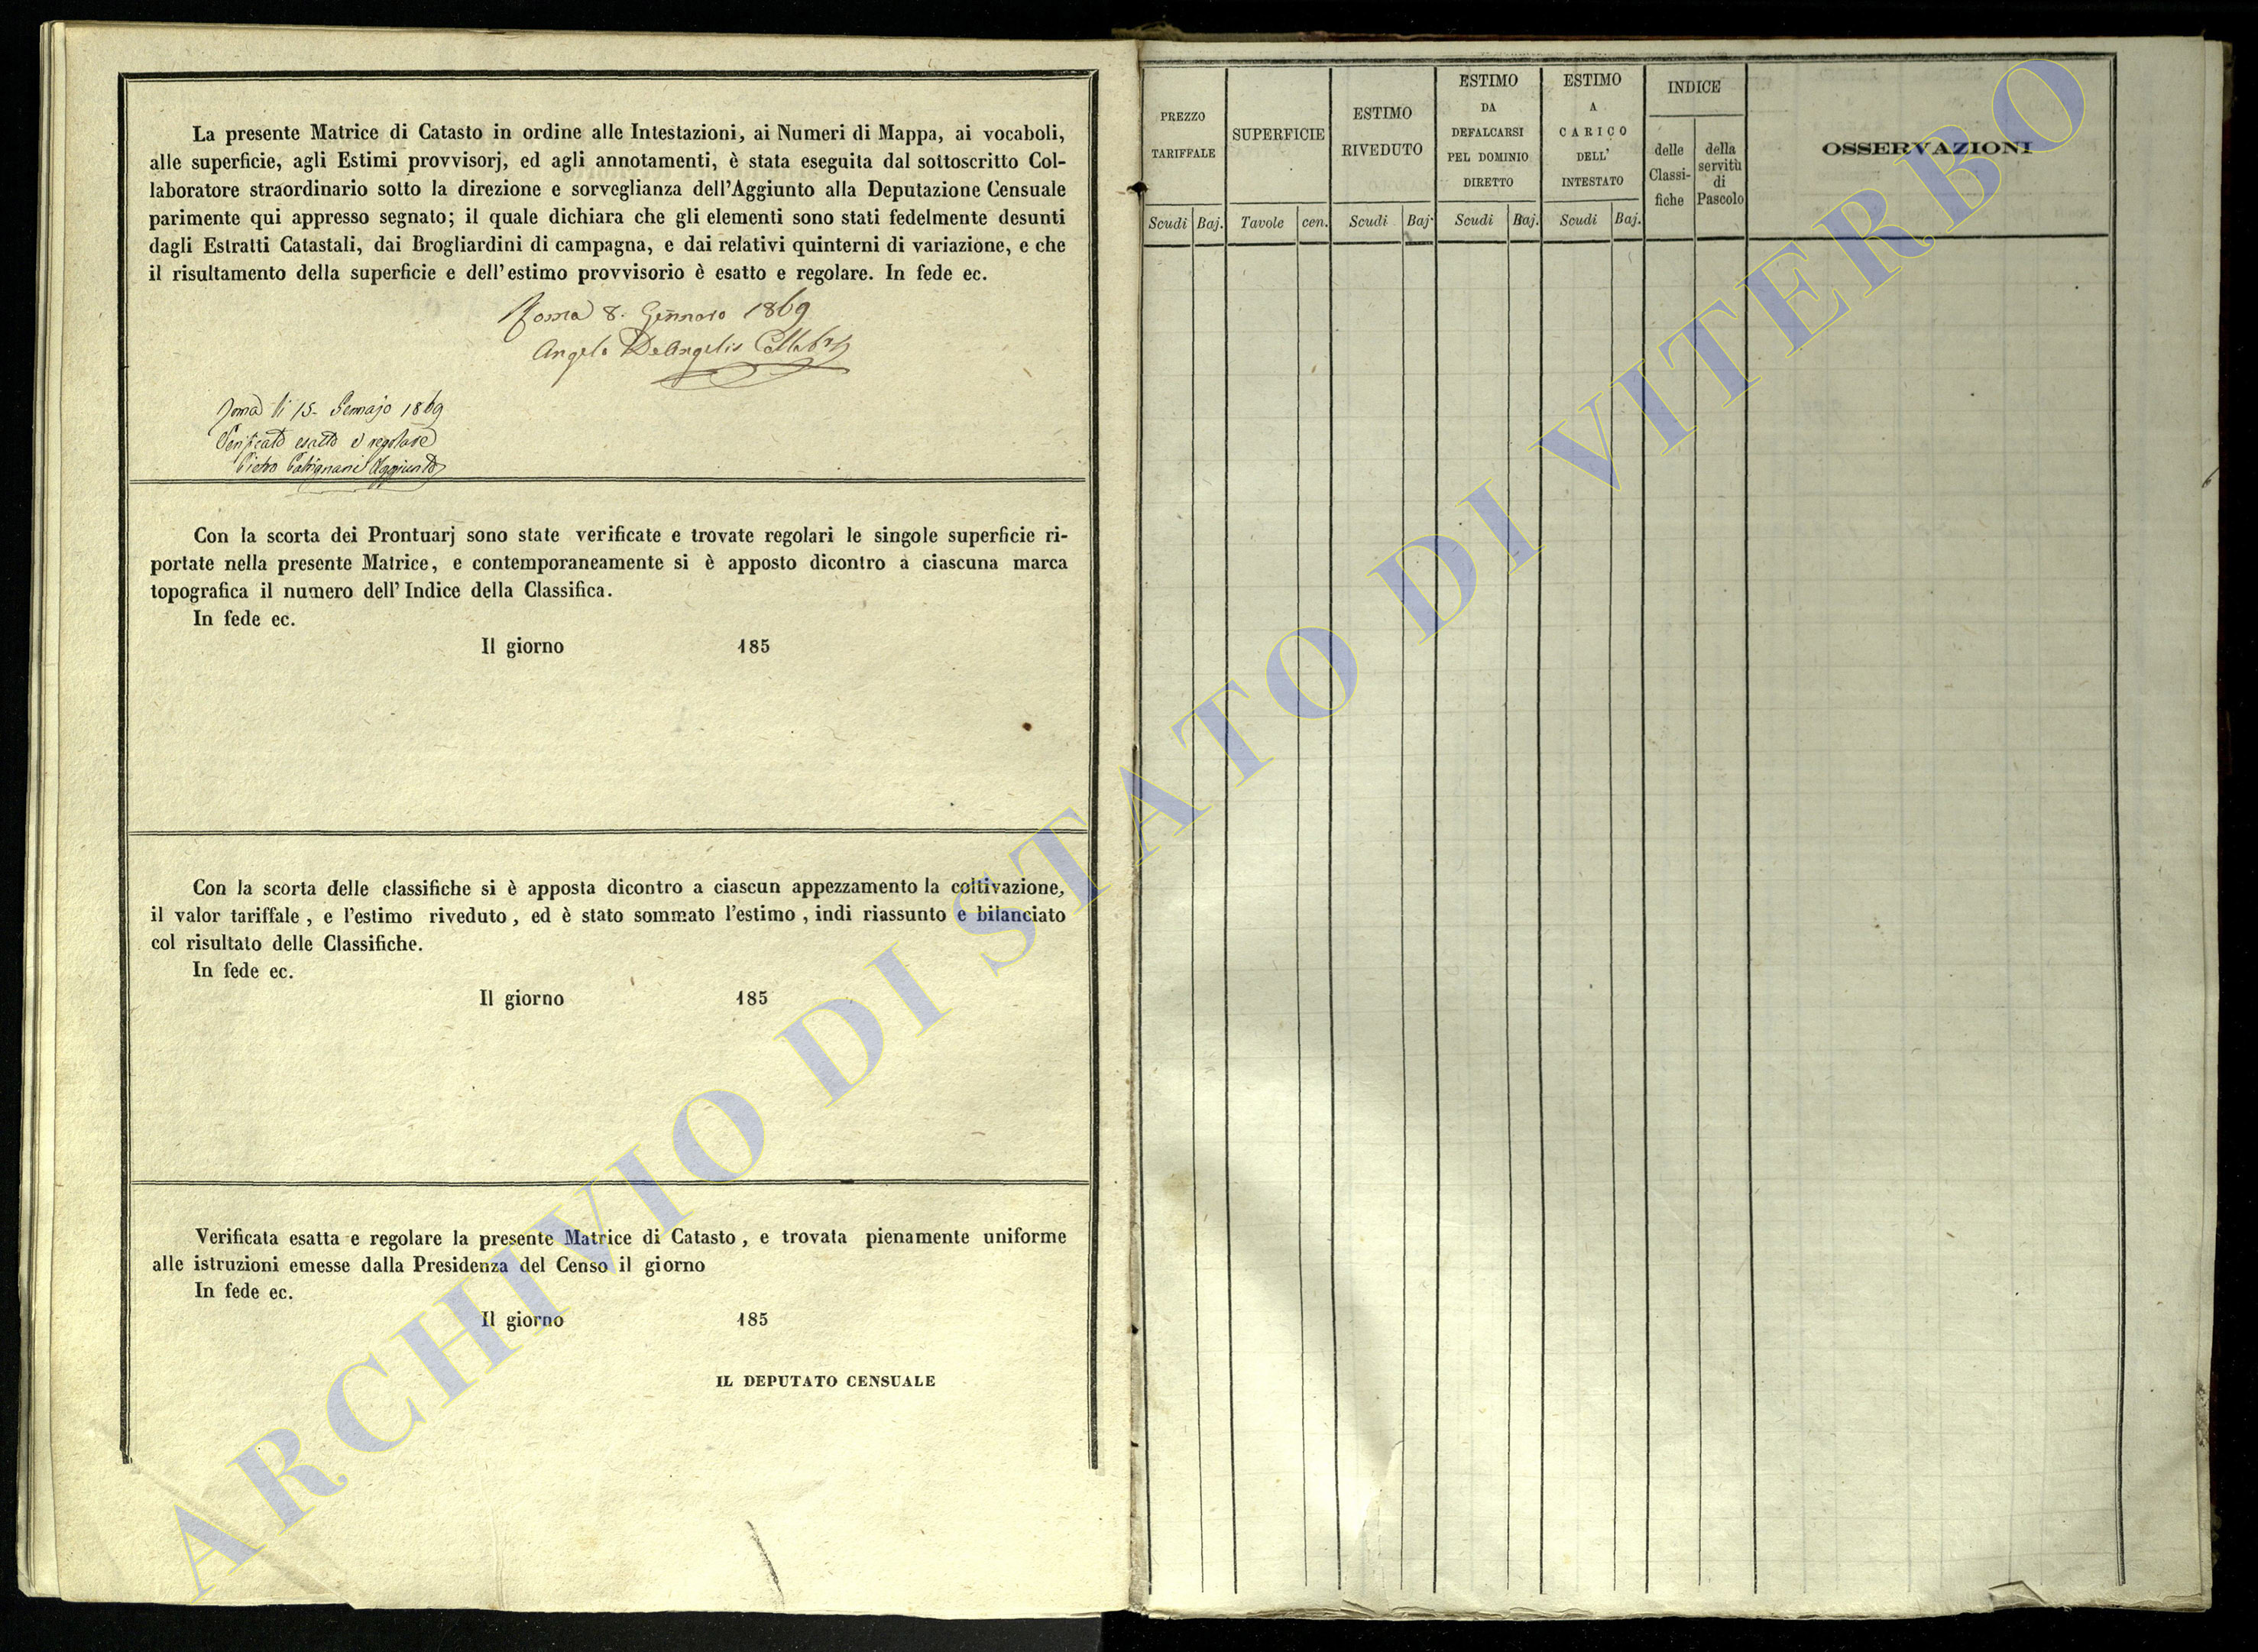 La presente Matrice di Catasto in ordine alle Intestazioni, ai Numeri di Mappa, ai vocaboli,
alle superficie, agli Estimi provvisorj, ed agli annotamenti, è stata eseguita dal sottoscritto Col-
laboratore straordinario sotto la direzione e sorveglianza dell'Aggiunto alla Deputazione Censuale
parimente qui appresso segnato; il quale dichiara che gli elementi sono stati fedelmente desunti
dagli Estratti Catastali, dai Brogliardini di campagna, e dai relativi quinterni di variazione, e che
il risultamento della superficie e dell'estimo provvisorio è esatto e regolare. In fede ec.
Roma 8. Gennaro 1869
Angelo DeAngelis Collabre
Roma li 15- Gennajo 1869
Verificato esatto e regolare
Pietro Aggiunto
Con la scorta dei Prontuarj sono state verificate e trovate regolari le singole superficie ri-
portate nella presente Matrice, e contemporaneamente si è apposto dicontro a ciascuna marca
topografica il numero dell'Indice della Classifica.
In fede ec.
Il giorno 185
Con la scorta delle classifiche si è apposta dicontro a ciascun appezzamento la coltivazione,
il valor tariffale, e l'estimo riveduto, ed è stato sommato l'estimo, indi riassunto e bilanciato
col risultato delle Classifiche.
In fede ec.
Il giorno 185
Verificata esatta e regolare la presente Matrice di Catasto, e trovata pienamente uniforme
alle istruzioni emesse dalla Presidenza del Censo il giorno
In fede ec.
Il giorno 185
IL DEPUTATO CENSUALE
PREZZO
TARIFFALE
Scudi Baj.
SUPERFICIE
Tavole cen.
ESTIMO
RIVEDUTO
Scudi Baj.
ESTIMO
DA
DEFALCARSI
PEL DOMINIO
DIRETTO
Scudi Baj.
ESTIMO
A
CARICO
DELL'
INTESTATO
Scudi Baj.
INDICE
delle
Classi-
fiche
della
servitù
di
Pascolo
OSSERVAZIONI
ARCHIVIO DI STATO DI VITERBO